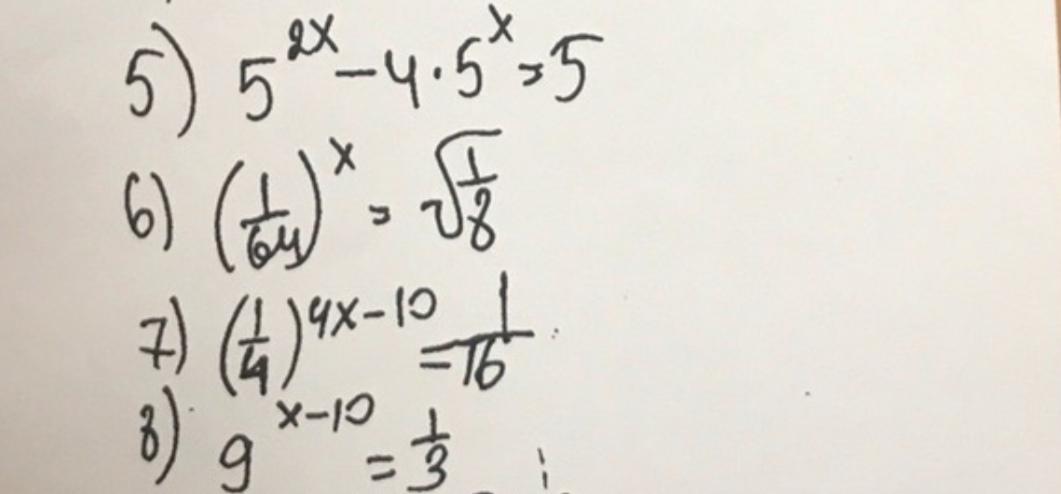 5) 5^{2x} - 4 · 5^x = 5
6) (1/64)^x = √(1/8)
7) (1/4)^{4x-10} = 1/16
8) 9^{x-10} = 1/3